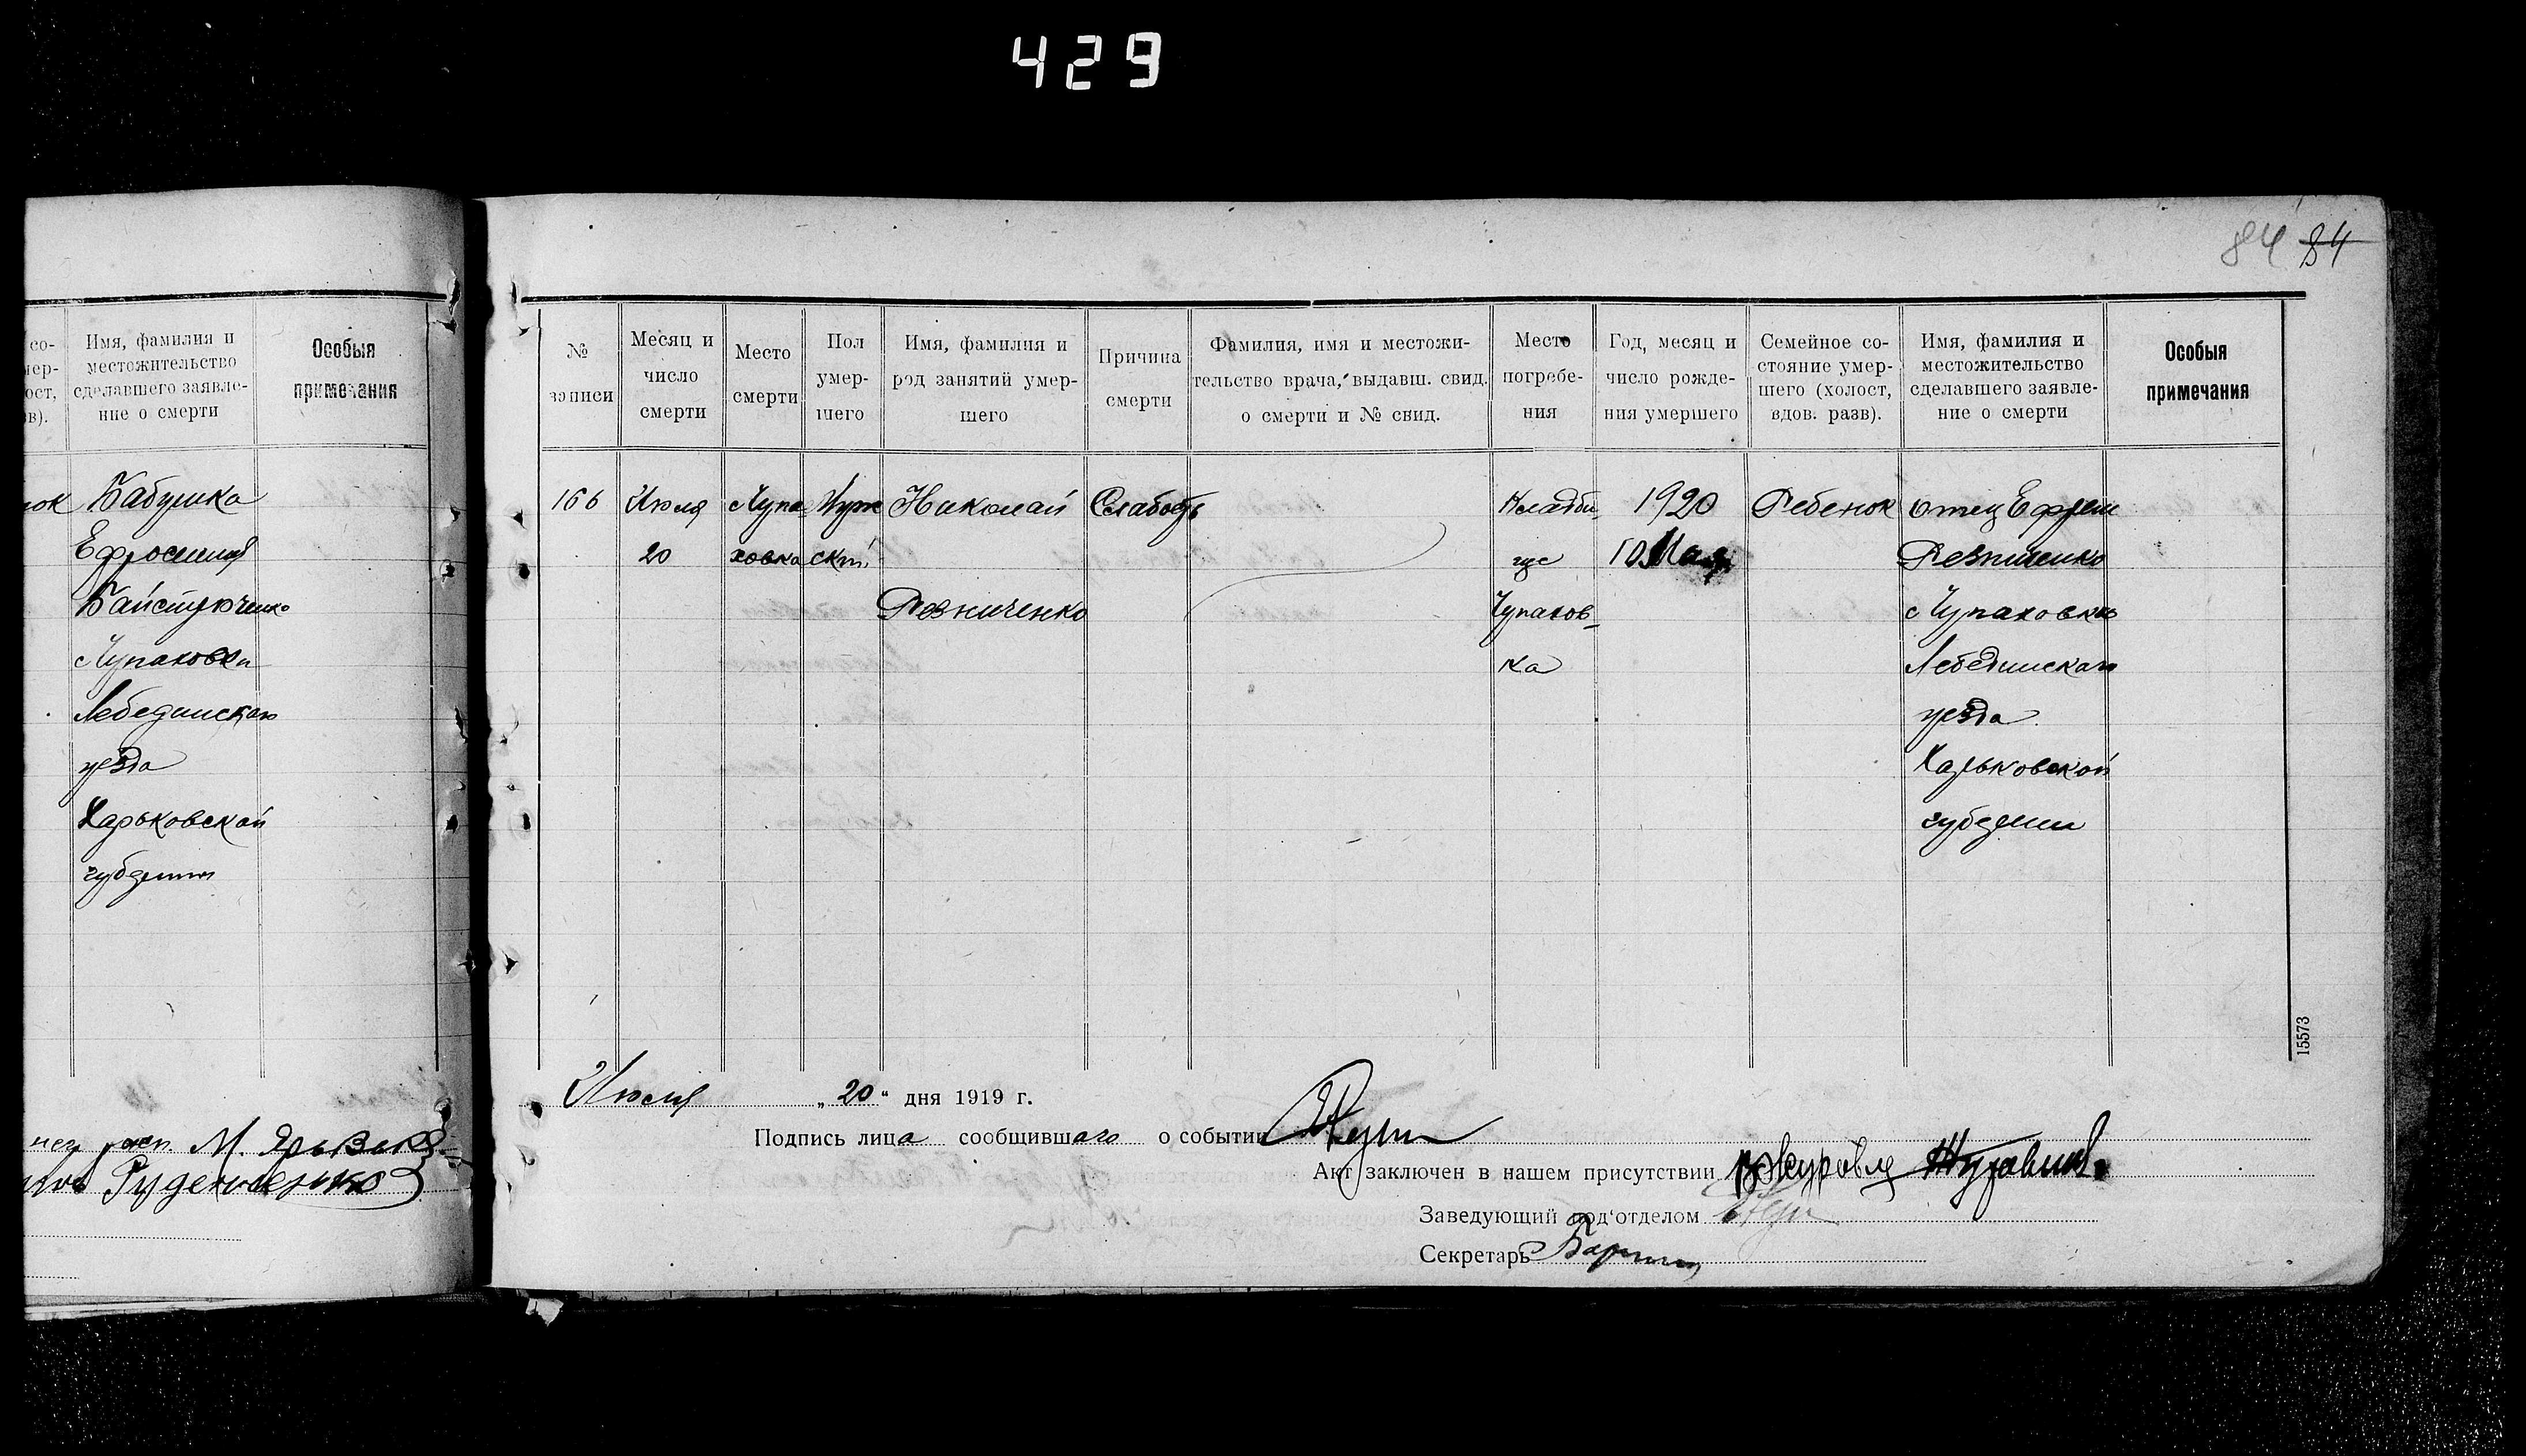 429
84 84
со-
мер-
ост,
зв).
Имя, фамилия и
местожительство
сделавшего заявле-
ние о смерти
Особыя
примечания
Бабушка
Ефросиния
Байстрюченко
Чупаховка
Лебединскаго
уезда
Харьковской
губернии
№
записи
Месяц и
число
смерти
Место
смерти
Пол
умер-
шего
Имя, фамилия и
род занятий умер-
шего
Причина
смерти
Фамилия, имя и местожи-
тельство врача, выдавш. свид.
о смерти и № свид.
Место
погребе-
ния
Год, месяц и
число рожде-
ния умершего
Семейное со-
стояние умер-
шего (холост,
вдов. разв).
Имя, фамилия и
местожительство
сделавшего заявле-
ние о смерти
Особыя
примечания
166 Июля Чупа- Муж Николай Слабость Кладби- 1920 Ребенок отец Ефрем
20 ховка ской ще 10 Мая Резниченко
Резниченко Чупахов- Чупаховка
ка Лебединскаго
уезда
Харьковской
губернии
15573
Июля „20“ дня 1919 г.
Подпись лица сообщившаго о событии
Акт заключен в нашем присутствии
Заведующий под‘отделом
Секретарь
М.